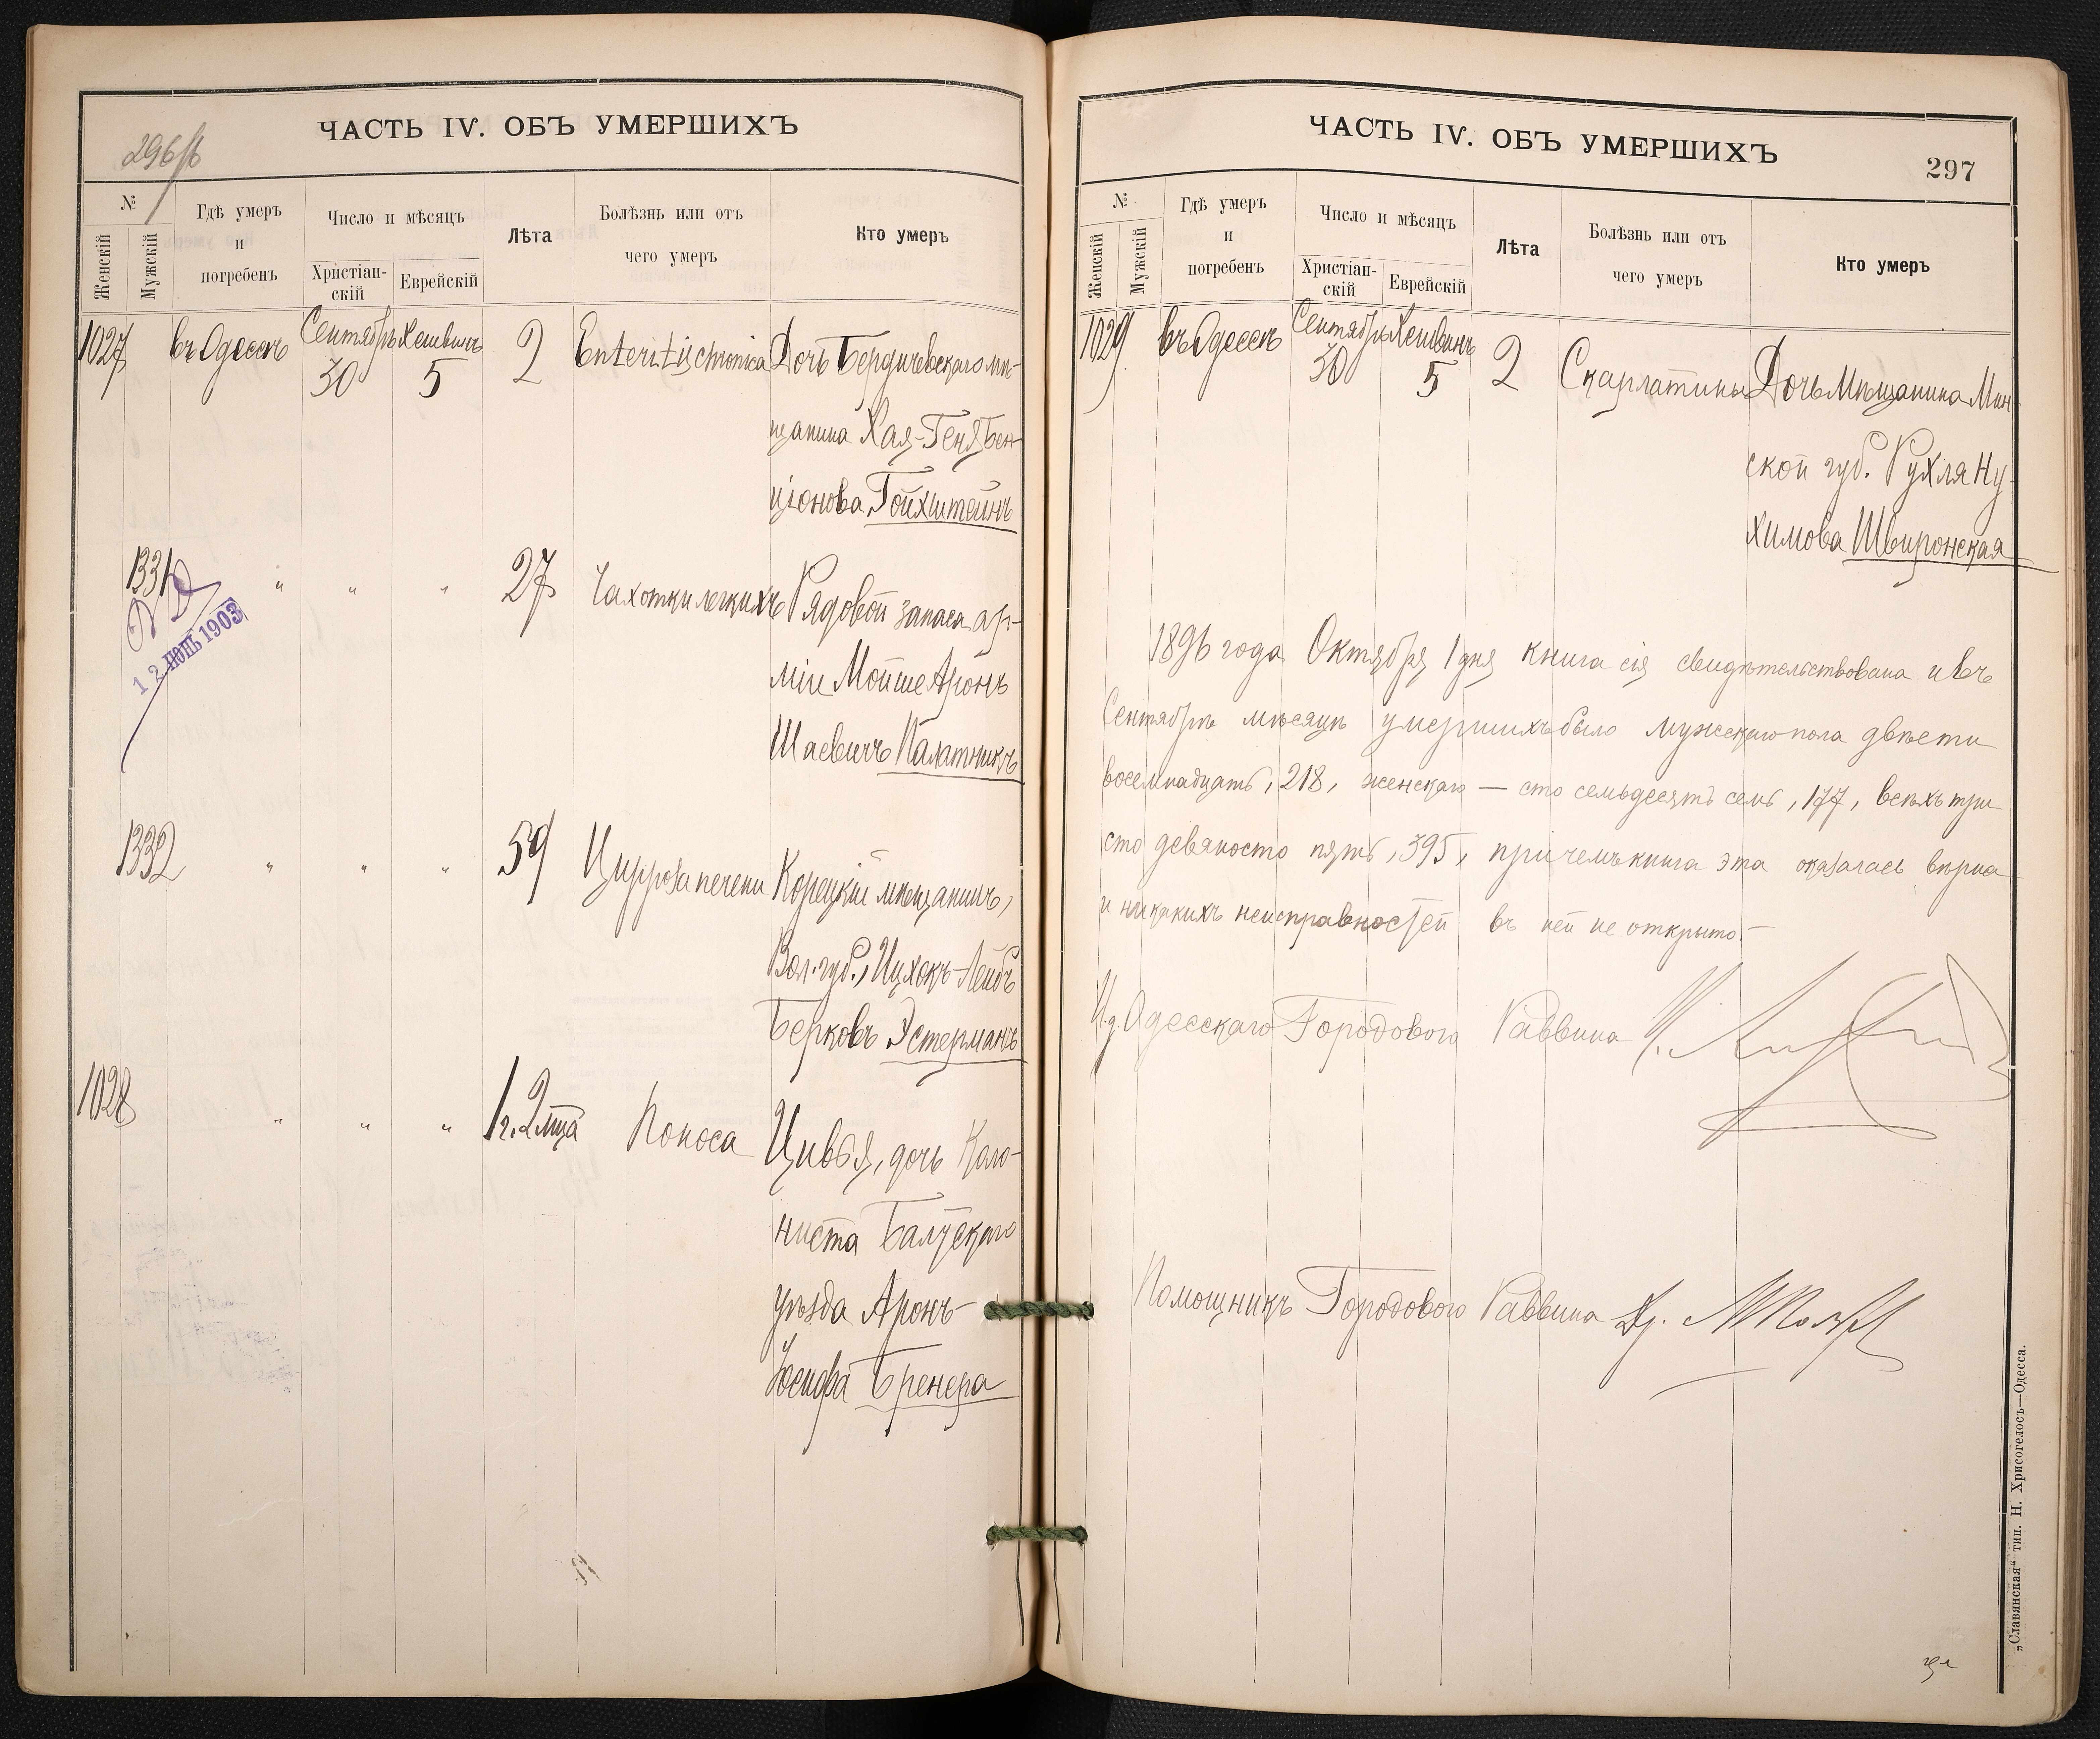 ЧАСТЬ IV. ОБЪ УМЕРШИХЪ
296/б
№
Женскій
Мужскій
Гдѣ умеръ
и
погребенъ
Число и мѣсяцъ
Христіан-
скій
Еврейскій
Лѣта
Болѣзнь или отъ
чего умеръ
Кто умеръ
1027 въ Одессѣ Сентябрь 30 Хешвинъ 5 2 Enteritis chronica Дочь Бердичевскаго мѣ-
щанина Хая-Геня Бен-
ціонова Гойхштейнъ
1331 " " " 27 Чахотки легкихъ Рядовой запаса ар-
міи Мойше Аронъ
Шаевичъ Палатникъ
12 ІЮНЬ 1903
1332 " " " 59 Цирроза печени Корецкій мѣщанинъ,
Вол. губ., Ицхокъ-Лейбъ
Берковъ Эстерманъ
1028 " " " 1 г. 2 мца Поноса Цивья, дочь Коло-
ниста Балтскаго
уѣзда Аронъ-
Іосифа Бренера
ЧАСТЬ IV. ОБЪ УМЕРШИХЪ
297
№
Женскій
Мужскій
Гдѣ умеръ
и
погребенъ
Число и мѣсяцъ
Христіан-
скій
Еврейскій
Лѣта
Болѣзнь или отъ
чего умеръ
Кто умеръ
1029 въ Одессѣ Сентябрь 30 Хешвинъ 5 2 Скарлатины Дочь Мѣщанина Мин
ской губ. Рухля Ну-
химова Швиронская
1896 года Октября 1 дня книга сія свидѣтельствована и въ
Сентябрѣ мѣсяцѣ умершихъ было мужскаго пола двѣсти
восемнадцать, 218, женскаго — сто семьдесятъ семь, 177, всѣхъ три
сто девяносто пять, 395, причемъ книга эта оказалась вѣрна
и никакихъ неисправностей въ ней не открыто.—
И. д. Одесскаго Городового Раввина
Помощникъ Городового Раввина Др.
„Славянская“ тип. Н. Хрисогелосъ—Одесса.